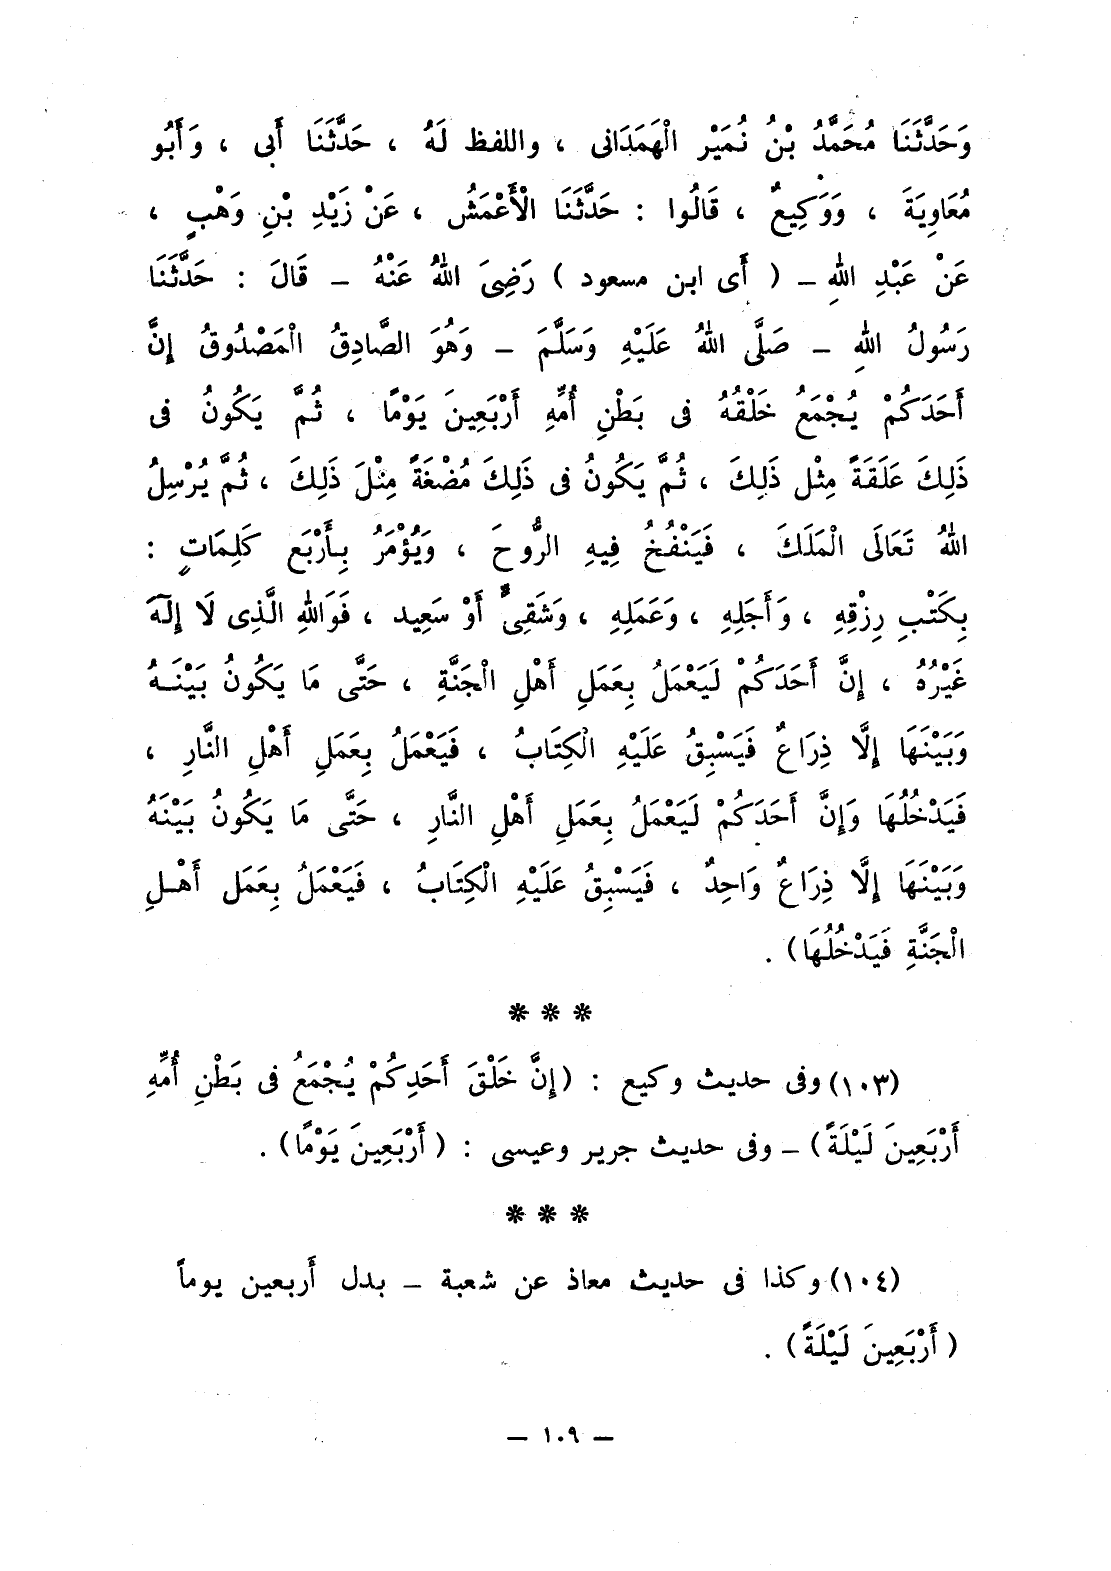 وَحَدَّثَنَا مُحَمَّدُ بْنُ نُمَيْرِ الْهَمَدَانى ، واللفظ لَهُ ، حَدَّثَنَا أَبى ، وَأَبُو
مُعَاوِيَةَ ، وَوَكِيعٌ ، قَالُوا : حَدَّثَنَا الْأَعْمَشُ ، عَنْ زَيْدِ بْنِ وَهْبٍ ،
عَنْ عَبْدِ اللهِ ـ ( أَى ابن مسعود ) رَضِىَ اللهُ عَنْهُ ـ قَالَ : حَدَّثَنَا
رَسُولُ اللهِ ـ صَلَّى اللهُ عَلَيْهِ وَسَلَّمَ ـ وَهُوَ الصَّادِقُ الْمَصْدُوقُ إِنَّ
أَحَدَكُمْ يُجْمَعُ خَلْقُهُ فى بَطْنِ أُمِّهِ أَرْبَعِينَ يَوْمًا ، ثُمَّ يَكُونُ فى
ذَلِكَ عَلَقَةً مِثْل ذَلِكَ ، ثُمَّ يَكُونُ فى ذَلِكَ مُضْغَةً مِثْلَ ذَلِكَ ، ثُمَّ يُرْسِلُ
اللهُ تَعَالَى الْمَلَكَ ، فَيَنْفُخُ فِيهِ الرُّوحَ ، وَيُؤْمَرُ بِأَرْبَعِ كَلِمَاتٍ :
بِكَتْبِ رِزْقِهِ ، وَأَجَلِهِ ، وَعَمَلِهِ ، وَشَقِىٌّ أَوْ سَعِيد ، فَوَاللهِ الَّذِى لَا إِلَهَ
غَيْرُهُ ، إِنَّ أَحَدَكُمْ لَيَعْمَلُ بِعَمَلِ أَهْلِ الْجَنَّةِ ، حَتَّى مَا يَكُونُ بَيْنَهُ
وَبَيْنَهَا إِلَّا ذِرَاعٌ فَيَسْبِقُ عَلَيْهِ الْكِتَابُ ، فَيَعْمَلُ بِعَمَلِ أَهْلِ النَّارِ ،
فَيَدْخُلُهَا وَإِنَّ أَحَدَكُمْ لَيَعْمَلُ بِعَمَلِ أَهْلِ النَّارِ ، حَتَّى مَا يَكُونُ بَيْنَهُ
وَبَيْنَهَا إِلَّا ذِرَاعٌ وَاحِدٌ ، فَيَسْبِقُ عَلَيْهِ الْكِتَابُ ، فَيَعْمَلُ بِعَمَلِ أَهْلِ
الْجَنَّةِ فَيَدْخُلُهَا) .
* * *
(١٠٣) وفى حديث وكيع : (إِنَّ خَلْقَ أَحَدِكُمْ يُجْمَعُ فى بَطْنِ أُمِّهِ
أَرْبَعِينَ لَيْلَةً) ـ وفى حديث جرير وعيسى : (أَرْبَعِينَ يَوْمًا) .
* * *
(١٠٤) وكذا فى حديث معاذ عن شعبة ـ بدل أربعين يوماً
(أَرْبَعِينَ لَيْلَةً) .
— ١٠٩ —